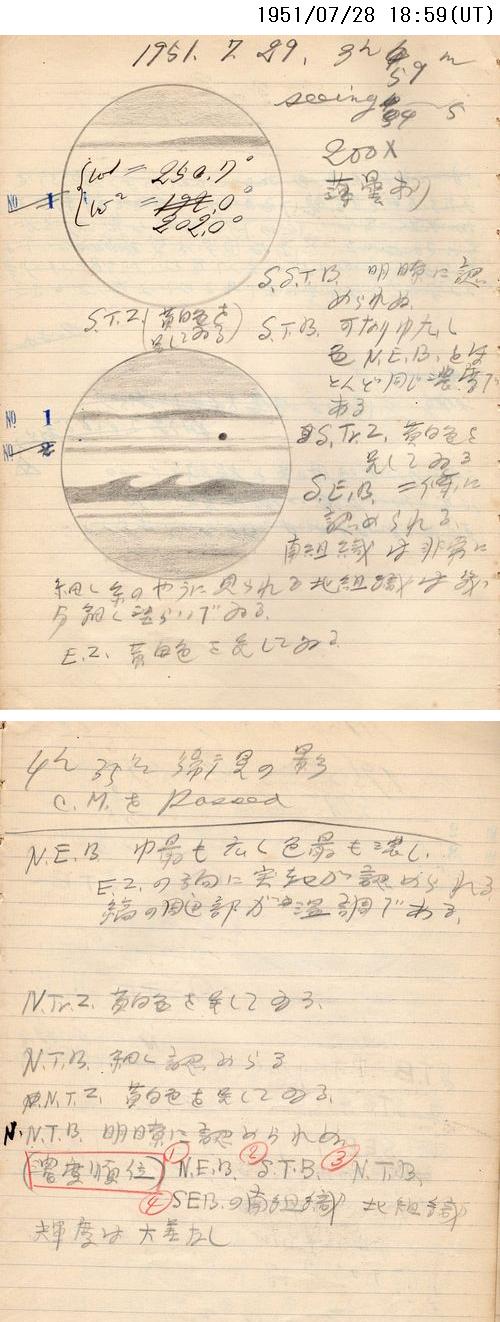 1951/07/28 18:59(UT)
1951. 7. 29. 3h 59m
seeing 5
200X
薄曇あり
ω1 = 250.7°
ω2 = 202.0°
No 1
S.S.T.B. 明瞭に認
められぬ
S.T.Z. (黄白色を
呈してゐる)
S.T.B. 可なり巾広し
色 N.E.B. とほ
とんど同じ濃度で
ある
No 1
No 2
S.Tr.Z. 黄白色を
呈してゐる
S.E.B. 二條に
認められる
南組織は非常に
細し糸のやうに見られる北組織は
E.Z. 黄白色を呈してゐる
4h 35m 衛星の影
C.M.を Passed
N.E.B. 巾最も広く色最も濃し.
E.Z.の方向に突起が認められる
縞の周辺部が濃調である.
N.Tr.Z. 黄白色を呈してゐる.
N.T.B. 細く認めらる
N.T.Z. 黄白色を呈してゐる.
N.N.T.B. 明瞭に認められぬ
(濃度順位) ① N.E.B. ② S.T.B. ③ N.T.B.
④ SEB.の南組織 北組織
輝度は大差なし